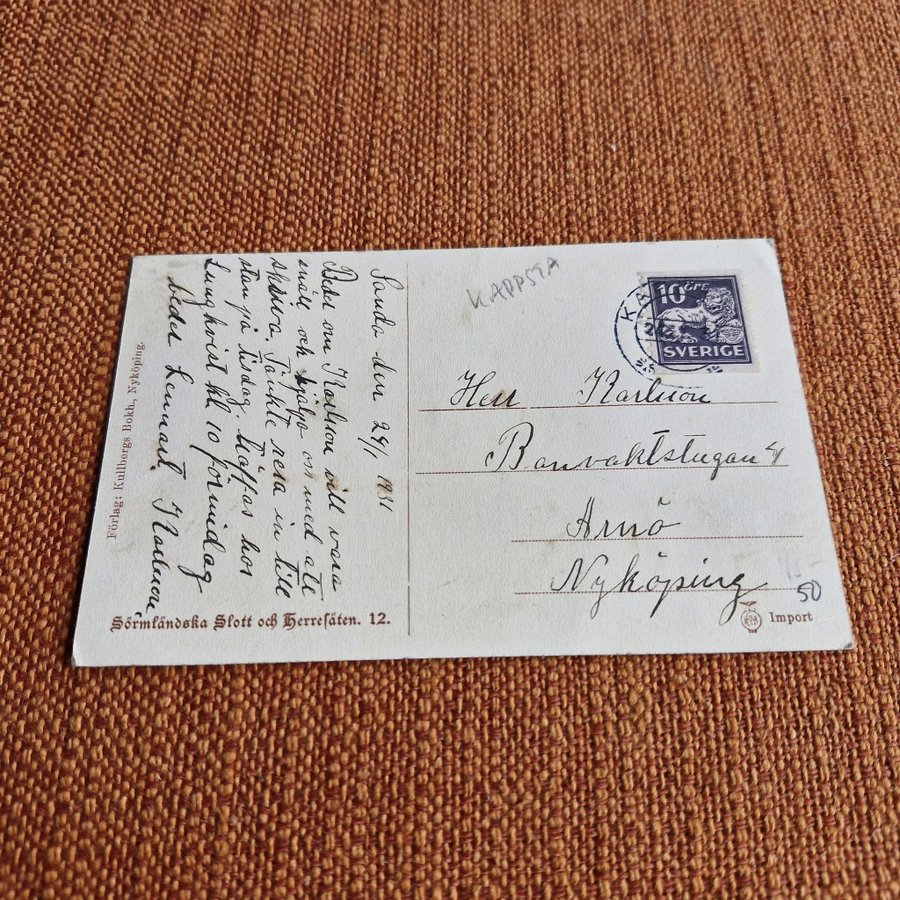 Förlag: Kullbergs Bokh., Nyköping.
Sanda den 29/1 1931
Beder om Karlsson vill vara
snäll och hjälpa oss med att
skriva. Tänkte resa in till
stan på tisdag. träffas hos
Ljungkvist kl 10 förmidag
beder Lennart Karlsson
Sörmländska Slott och Herresäten. 12.
KAPPSTA
10 ÖRE
SVERIGE
Herr Karlsson
Banvaktstugan
Arnö
Nyköping
50
Import